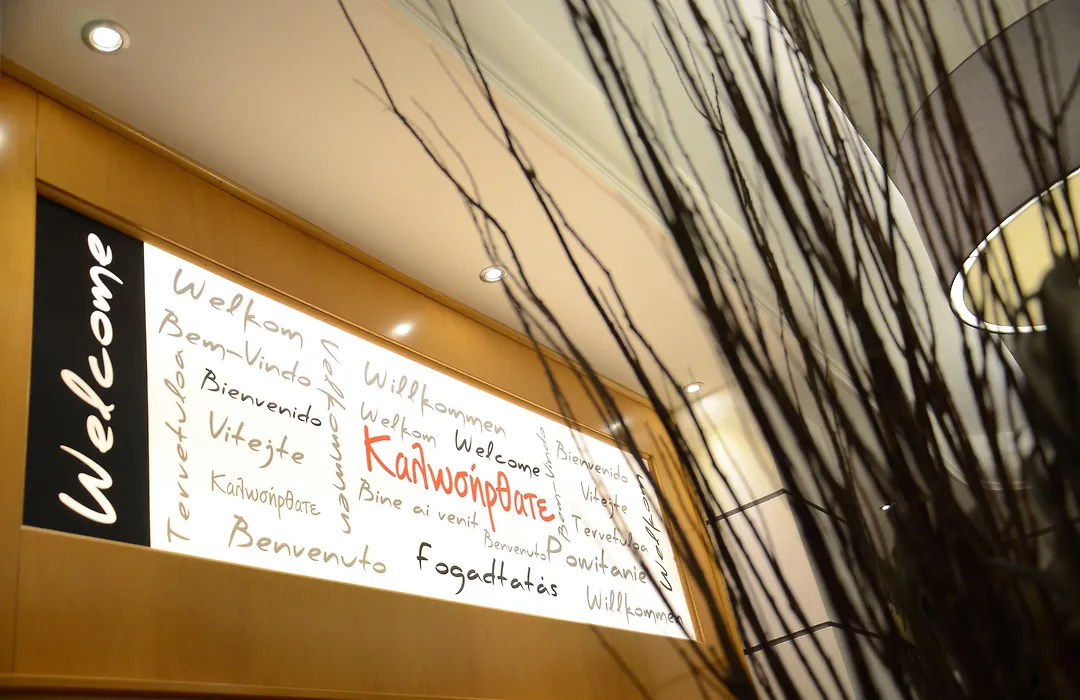 Welcome
Welkom
Bem-Vindo
Tervetuloa
Bienvenido
Vitejte
Καλωσήρθατε
Benvenuto
Willkommen
Willkommen
Welkom
Welcome
Καλωσήρθατε
Bine ai venit
Benvenuto
Fogadtatás
Bem Vindo
Bienvenido
Vitejte
Tervetuloa
Powitanie
Welkom
Willkommen